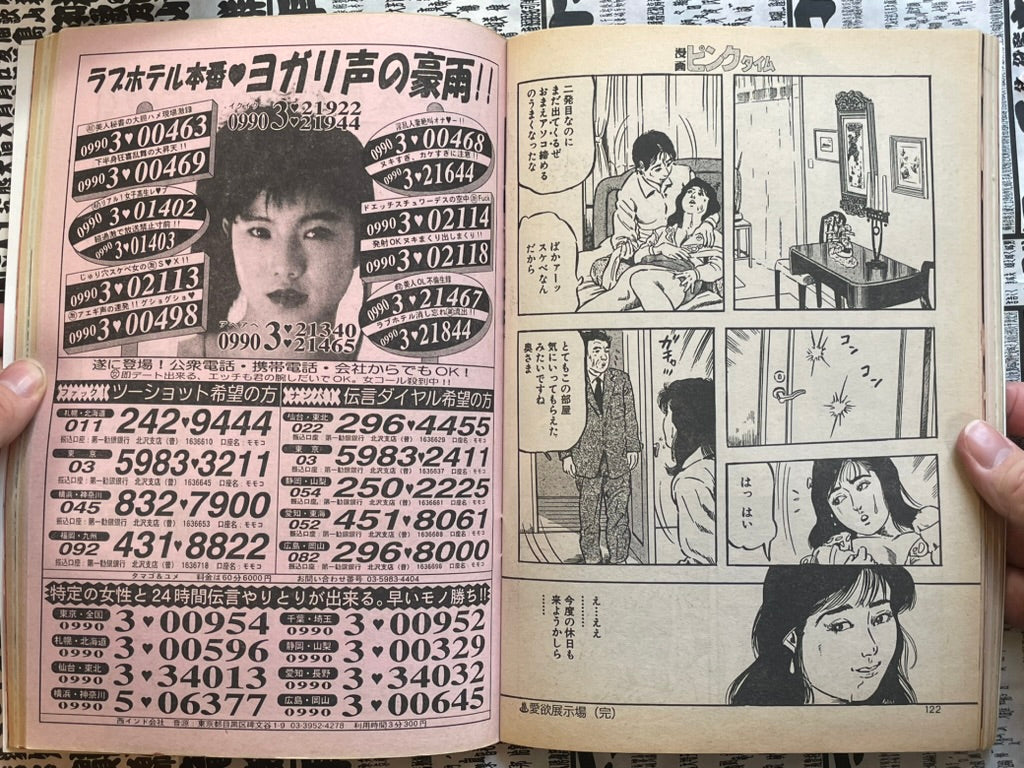 ラブホテル本番♥ヨガリ声の豪雨!!
0990 3♥21922
0990 3♥21944
美人秘書の大胆ハメ現場激録
0990 3♥00463
下半身狂喜乱舞の大昇天!!
0990 3♥00469
0990 3♥01402
超過激で放送禁止寸前!!
0990 3♥01403
0990 3♥02113
アエギ声の連発!!グショグショ♥
0990 3♥00498
0990 3♥00468
ヌキすぎ、カケすぎに注意!!
0990 3♥21644
ドエッチスチュワーデスの空中Fuck
0990 3♥02114
発射OKヌキまくり出しまくり!!
0990 3♥02118
美人OL不倫生録
0990 3♥21467
0990 3♥21844
アヘアヘ
0990 3♥21340
0990 3♥21465
遂に登場!公衆電話・携帯電話・会社からでもOK!
即デート出来る、エッチも君の腕しだいでOK。女コール殺到中!!
ツーショット希望の方
札幌・北海道
011 242♥9444
振込口座:第一勧銀銀行 北沢支店(普) 1636610 口座名:モモコ
東京
03 5983♥3211
振込口座:第一勧銀銀行 北沢支店(普) 1636645 口座名:モモコ
横浜・神奈川
045 832♥7900
振込口座:第一勧銀銀行 北沢支店(普) 1636653 口座名:モモコ
福岡・九州
092 431♥8822
振込口座:第一勧銀銀行 北沢支店(普) 1636718 口座名:モモコ
伝言ダイヤル希望の方
仙台・東北
022 296♥4455
振込口座:第一勧銀銀行 北沢支店(普) 1636629 口座名:モモコ
東京
03 5983♥2411
振込口座:第一勧銀銀行 北沢支店(普) 1636637 口座名:モモコ
静岡・山梨
054 250♥2225
振込口座:第一勧銀銀行 北沢支店(普) 1636661 口座名:モモコ
愛知・東海
052 451♥8061
振込口座:第一勧銀銀行 北沢支店(普) 1636688 口座名:モモコ
広島・岡山
082 296♥8000
振込口座:第一勧銀銀行 北沢支店(普) 1636696 口座名:モモコ
タマゴ&ユメ 料金は60分6000円 お問い合わせ番号 03-5983-4404
特定の女性と24時間伝言やりとりが出来る。早いモノ勝ち!!
東京・全国
0990 3♥00954
札幌・北海道
0990 3♥00596
仙台・東北
0990 3♥34013
横浜・神奈川
0990 5♥06377
千葉・埼玉
0990 3♥00952
静岡・山梨
0990 3♥00329
愛知・長野
0990 3♥34032
広島・岡山
0990 3♥00645
西インド会社 音源:東京都目黒区碑文谷1-9 03-3952-4278 利用時間3分300円
漫画ピンクタイム
二発目なのに
まだ出てくるぜ
おまえアソコ締める
のうまくなったな
ばかァーッ
スケベなん
だから
コン
コン
ガチッ
とてもこの部屋
気にいってもらえた
みたいですね
奥さま
はっ はい
え…ええ
今度の休日も
来ようかしら
………
………
愛欲展示場(完)
122